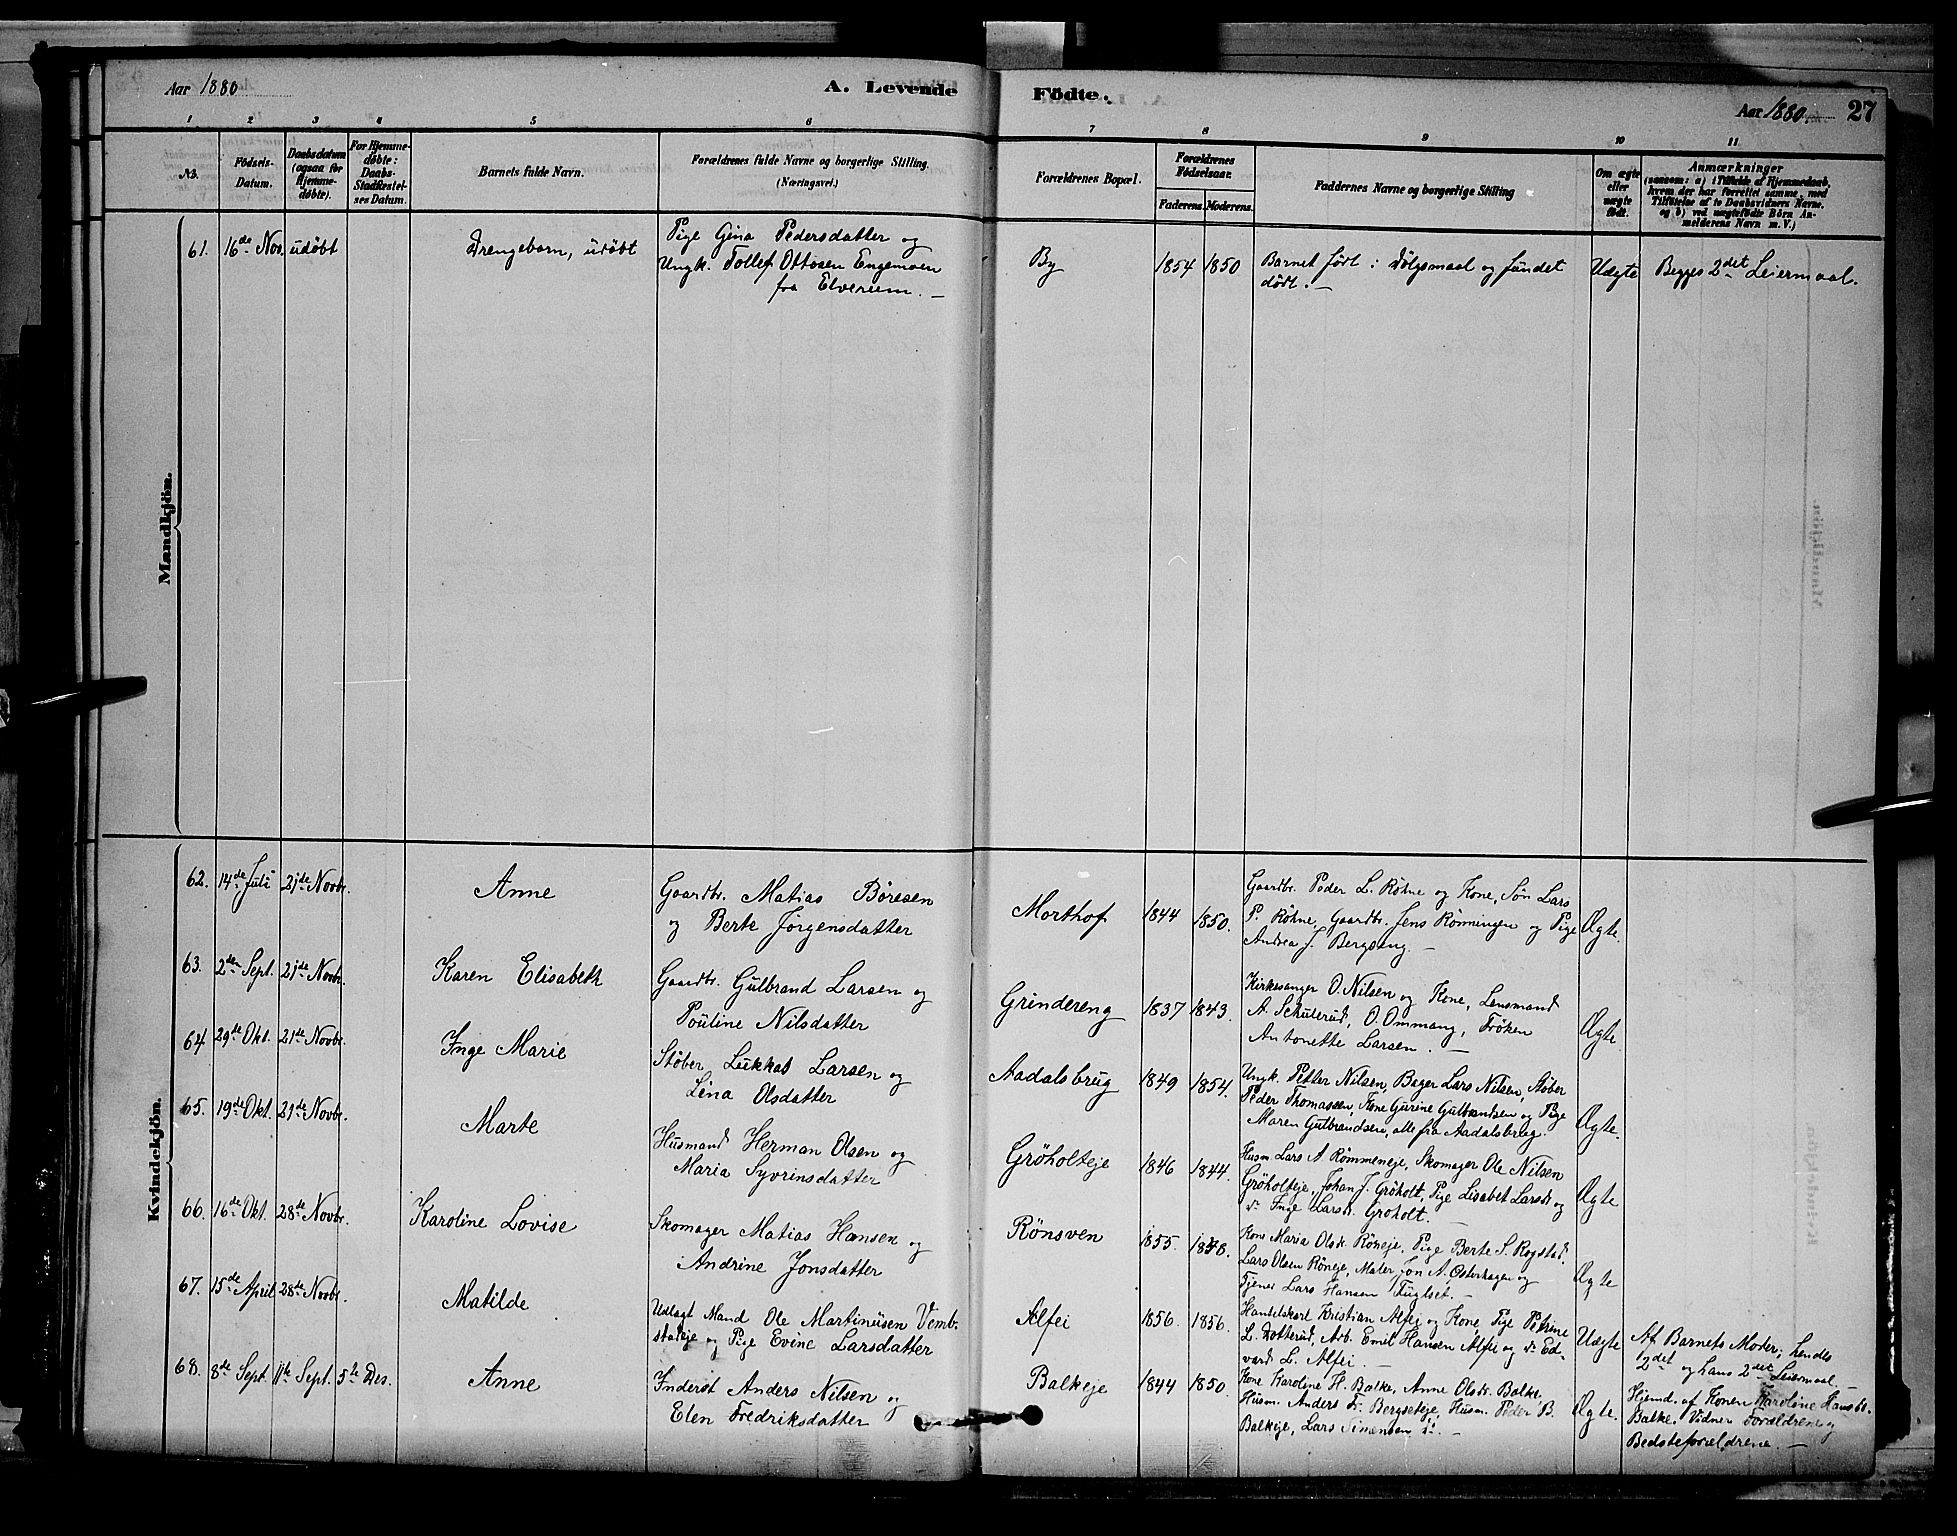 Aar 1880
A. Levende
Födte.
Aar 1880. 27
1 2 3 4 5 6 7 8 9 10 11
No. Födsels-Datum. Daabsdatum (ogsaa for Hjemmedöbte). For Hjemmedöbte: Daabs-Stadfæstelses Datum. Barnets fulde Navn. Forældrenes fulde Navne og borgerlige Stilling. (Næringsvei.) Forældrenes Bopæl. Forældrenes Födselsaar. Faderens. Moderens. Faddernes Navne og borgerlige Stilling Om ægte eller uægte födt. Anmærkninger (saasom: a) i Tilfælde af Hjemmedaab, hvem der har forrettet samme, med Tilföielse af to Daabsvidners Navne, og b) ved uægtefödte Börn Anmelderens Navn m. V.)
Mandkjön.
61. 16de Nov. udöbt Drengebarn, udöbt
Pige Gina Pedersdatter og
Ungk. Tollef Ottosen Engemoen
fra Elverum. —
By 1854 1850
Barnet födt i Dölgsmaal og fundet
dödt. —
Uægte Begges 2det Leiermaal.
Kvindekjön.
62. 14de Juli 21de Novbr. Anne
Gaardbr. Matias Böresen
og Berte Jörgensdatter
Morthof 1844 1850.
Gaardbr. Peder L. Röhne og Kone, Sön Lars
P. Röhne, Gaardbr. Jens Rönningen og Pige
Andrea J. Bergseng. —
Ægte.
63. 2den Sept. 21de Novbr. Karen Elisabeth
Gaardbr. Gulbrand Larsen og
Pouline Nilsdatter
Grindereng 1837 1843.
Kirkesanger O. Nilsen og Kone, Lensmand
A. Schulerud, O. Ommang, Fröken
Antonette Larsen. —
Ægte.
64 29de Okt. 21de Novbr. Inge Marie
Stöber Lukkas Larsen og
Lina Olsdatter
Aadalsbrug 1849 1854.
Ungk. Petter Nilsen, Bager Lars Nilsen, Stöber
Peder Thomassen, Kone Gurine Gulbrandsen og Pige
Maren Gulbrandsen, alle fra Aadalsbrug.
Ægte.
65. 19de Okt. 21de Novbr. Marte
Husmand Herman Olsen og
Maria Syvrinsdatter
Gröholteje 1846 1844.
Husm Lars A. Römmeneje, Skomager Ole Nilsen
Gröholteje, Johan J. Gröholt, Pige Lisabet Larsdr og
do Inge Larsdr. Gröholt. —
Ægte
66. 16de Okt. 28de Novbr. Karoline Lovise
Skomager Matias Hansen og
Andrine Jonsdatter
Rönsven 1855.
Kone Maria Olsdr. Röneje, Pige Berte S. Rogstad,
Lars Olsen Röneje, Maler Jon A. Osterhagen og
Tjener Lars Hansen Fuglset. —
Ægte
67. 15de April 28de Novbr. Matilde
Udlagt Mand Ole Martinusen Vemb-
stadeje og Pige Evine Larsdatter
Alfei 1856. 1856.
Handelskarl Kristian Alfei og Kone, Pige Petrine
L. Dotterud, Arb. Emil Hansen Alfei og do Ed-
vard L. Alfei. —
Uægte
Af Barnets Moder; hendes
2det og hans 2det Leiermaal —
68. 8de Sept. 11te Sept. 5te Des. Anne
Inderst Anders Nilsen og
Elen Fredriksdatter
Balkeje 1844 1850.
Kone Karoline H. Balke, Anne Olsdr. Balke
Husm. Anders Fr. Bergseteje, Husm. Peder B.
Balkeje, Lars Simensen do. —
Ægte.
Hjemd. af Konen Karoline Hansdr.
Balke. Vidner Forældrene og
Bedsteforældrene. —